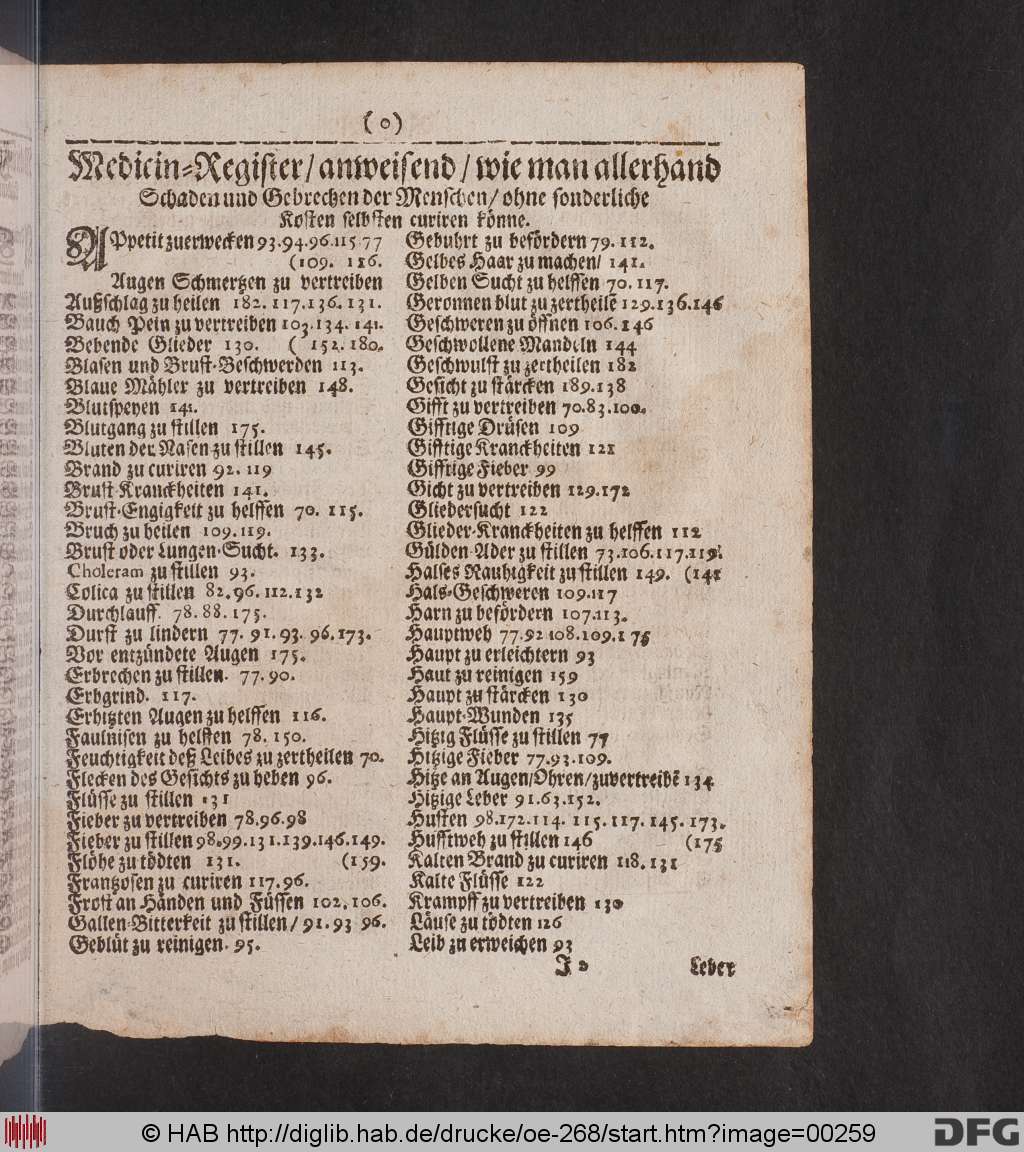 (o)
Medicin-Register/ anweisend/ wie man allerhand
Schaden und Gebrechen der Menschen/ ohne sonderliche
Kosten selbsten curiren könne.
APpetit zuerwecken 93.94.96.115 77
(109. 116.
Augen Schmertzen zu vertreiben
Außschlag zu heilen 182.117.136.131.
Bauch Pein zu vertreiben 103.134.141.
Bebende Glieder 130. ( 152.180.
Blasen und Brust-Beschwerden 113.
Blaue Mähler zu vertreiben 148.
Blutspeyen 141.
Blutgang zu stillen 175.
Bluten der Nasen zu stillen 145.
Brand zu curiren 92.119
Brust-Kranckheiten 141.
Brust-Engigkeit zu helffen 70. 115.
Bruch zu heilen 109.119.
Brust oder Lungen-Sucht. 133.
Choleram zu stillen 93.
Colica zu stillen 82.96.112.132
Durchlauff. 78.88.175.
Durst zu lindern 77. 91.93. 96.173.
Vor entzündete Augen 175.
Erbrechen zu stillen. 77.90.
Erbgrind. 117.
Erhitzten Augen zu helffen 116.
Faulnisen zu helften 78.150.
Feuchtigkeit deß Leibes zu zertheilen 70.
Flecken des Gesichts zu heben 96.
Flüsse zu stillen 131
Fieber zu vertreiben 78.96.98
Fieber zu stillen 98.99.131.139.146.149.
Flöhe zu tödten 131. (159.
Frantzosen zu curiren 117.96.
Frost an Händen und Füssen 102.106.
Gallen-Bitterkeit zu stillen/ 91.93 96.
Geblüt zu reinigen. 95.
Gebuhrt zu befördern 79.112.
Gelbes Haar zu machen/ 141.
Gelben Sucht zu helffen 70.117.
Geronnen blut zu zertheilē 129.136.146
Geschweren zu öffnen 106.146
Geschwollene Mandeln 144
Geschwulst zu zertheilen 182
Gesicht zu stärcken 189.138
Gifft zu vertreiben 70.83.100.
Gifftige Drüsen 109
Gifftige Kranckheiten 121
Gifftige Fieber 99
Gicht zu vertreiben 129.172
Gliedersucht 122
Glieder-Kranckheiten zu helffen 112
Gülden-Ader zu stillen 73.106.117.119.
Halses Rauhigkeit zu stillen 149. (141
Hals-Geschweren 109.117
Harn zu befördern 107.113.
Hauptweh 77.92 108.109.175
Haupt zu erleichtern 93
Haut zu reinigen 159
Haupt zu stärcken 130
Haupt-Wunden 135
Hitzig Flüsse zu stillen 77
Hitzige Fieber 77.93.109.
Hitze an Augen/Ohren/zuvertreibē 134
Hitzige Leber 91.63.152.
Husten 98.172.114. 115.117.145.173.
Hufftweh zu stillen 146 (175
Kalten Brand zu curiren 118.131
Kalte Flüsse 122
Krampff zu vertreiben 130
Läuse zu tödten 126
Leib zu erweichen 93
J
Leber
© HAB http://diglib.hab.de/drucke/oe-268/start.htm?image=00259
DFG